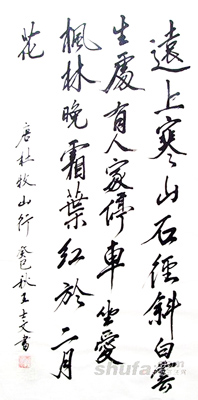 遠上寒山石徑斜白雲
生處有人家停車坐愛
楓林晚霜葉紅於二月
花
唐杜牧山行 癸巳秋王文書
shufa